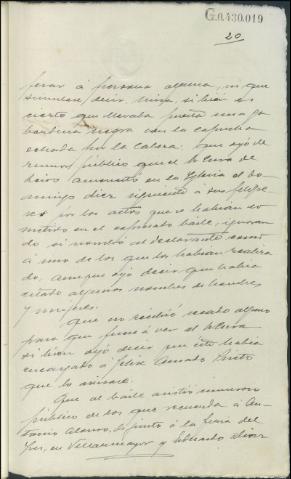 G.0.430.019
20
á persona alguna, ni que
decir Misa, si bien es
cierto que llevaba puesta una ga
bardina negra con la capucha
echada por la cabeza. Que oyó de
rumor público que el Sr Cura de
amonestó en la Iglesia el do
mingo diez siguiente á sus feligre
ses por los actos que se habian co
metido en el expresado baile, ignoran
do si nombró al declarante como
á uno de los que los habian realiza
do, aunque oyó decir que habia
citado algunos nombres de hombres
y mujeres.
Que no recibió recado alguno
para que fuese á ver al Sr Cura
si bien oyó decir que este habia
encargado á Felix Amado Prieto
que le avisara.
Que al baile asistió numeroso
público de los que recuerda á An
tonio Alonso, de junto á la fuera del
en Villarmayor y